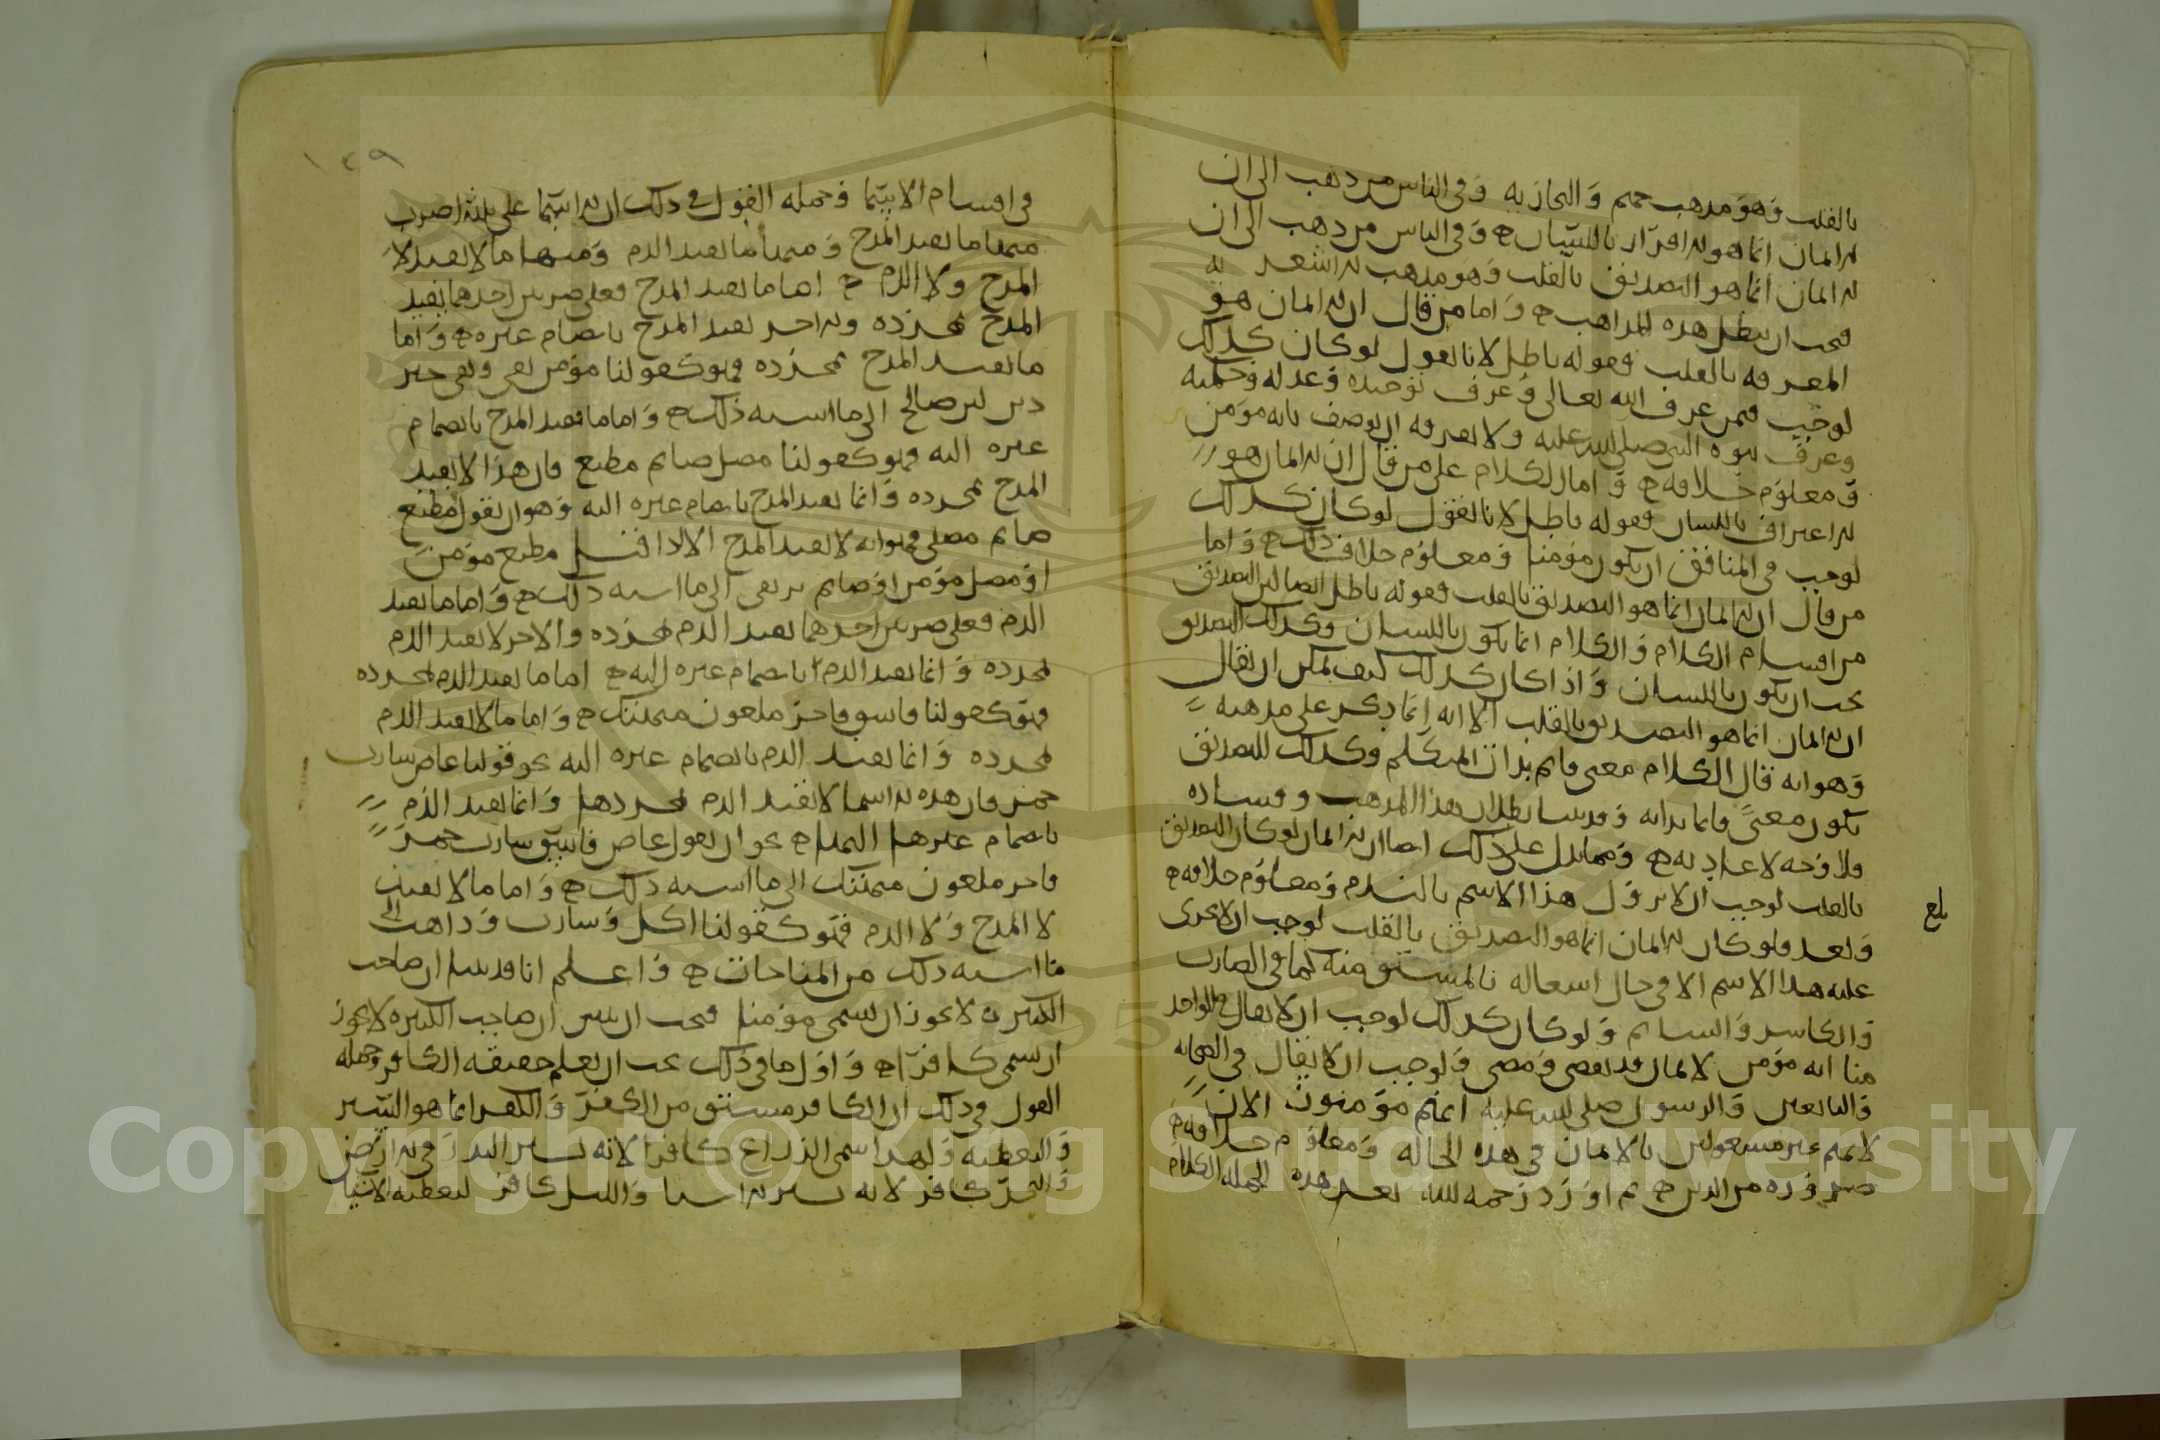 بالقلب وهو مذهب جهم والنجاريه وفي الناس من ذهب الى ان
الايمان انما هو الاقرار باللسان وفي الناس من ذهب الى ان
الايمان انما هو التصديق بالقلب وهو مذهب الاشعريه
فيجب ان نبطل هذه المذاهب واما من قال ان الايمان هو
المعرفه بالقلب فقوله باطل لانا نقول لو كان كذلك
لوجب فيمن عرف الله تعالى وعرف توحيده وعدله وحكمته
وعرف نبوه النبي صلى الله عليه ولا يقر به ان يوصف بانه مؤمن
ومعلوم خلافه واما الكلام على من قال ان الايمان هو
الاعتراف باللسان فقوله باطل لانا نقول لو كان كذلك
لوجب في المنافق ان يكون مؤمنا ومعلوم خلاف ذلك واما
من قال ان الايمان انما هو التصديق بالقلب فقوله باطل ايضا لان التصديق
من اقسام الكلام والكلام انما يكون باللسان وكذلك التصديق
يجب ان يكون باللسان واذا كان كذلك كيف يمكن ان يقال
ان الايمان انما هو التصديق بالقلب الا انه انما ذكر على مذهبه
وهو انه قال الكلام معنى قائم بذات المتكلم وكذلك التصديق
يكون معنى قائما بذاته وقد بينا بطلان هذا المذهب وفساده
فلا وجه لاعادته ومما يدل على ذلك ايضا ان الايمان لو كان التصديق
بالقلب لوجب ان لا يزول هذا الاسم بالندم ومعلوم خلافه
وبعد فلو كان الايمان انما هو التصديق بالقلب لوجب ان لا يجرى
عليه هذا الاسم الا في حال اشتغاله بالمشتق منه كما في الضارب
والكاسر والشاتم ولو كان كذلك لوجب ان لا يقال في الواحد
منا انه مؤمن لايمان قد تقضى ومضى ولوجب ان لا يقال في الصحابه
والتابعين والرسول صلى الله عليه انهم مؤمنون الان
لانهم غير مشغولين بالايمان في هذه الحاله ومعلوم خلافه
ضروره من الدين ثم اورد رحمه الله بعد هذه الجمله الكلام
بلغ
١٤٩
في اقسام الاسما وجمله القول في ذلك ان الاسما على ثلثه اضرب
منها ما يفيد المدح ومنها ما يفيد الذم ومنها ما لا يفيد لا
المدح ولا الذم اما ما يفيد المدح فعلى ضربين احدهما يفيد
المدح بمجرده والاخر يفيد المدح بانضمام غيره واما
ما يفيد المدح بمجرده فهو كقولنا مؤمن تقي ونقي خير
دين بر صالح الى ما اشبه ذلك واما ما يفيد المدح بانضمام
غيره اليه فهو كقولنا مصل صايم مطيع فان هذا لا يفيد
المدح بمجرده وانما يفيد المدح بانضمام غيره اليه وهو ان نقول مطيع
صايم مصلى فهو انه لا يفيد المدح الا اذا قيل مطيع مؤمن
او مصل مؤمن او صايم بر تقي الى ما اشبه ذلك واما ما يفيد
الذم فعلى ضربين احدهما يفيد الذم بمجرده والاخر لا يفيد الذم
بمجرده وانما يفيد الذم بانضمام غيره اليه اما ما يفيد الذم بمجرده
فهو كقولنا فاسق فاجر ملعون متهتك واما ما لا يفيد الذم
بمجرده وانما يفيد الذم بانضمام غيره اليه نحو قولنا عاص شارب
خمر فان هذه الاسما لا تفيد الذم بمجردها وانما يفيد الذم
بانضمام غيرها اليها نحو ان نقول عاص فاسق شارب خمر
فاجر ملعون متهتك الى ما اشبه ذلك واما ما لا يفيد
لا المدح ولا الذم فهو كقولنا اكل وشارب وذاهب الى
ما اشبه ذلك من المباحات واعلم انا قد بينا ان صاحب
الكبيره لا يجوز ان يسمى مؤمنا فيجب ان نبين ان صاحب الكبيره لا يجوز
ان يسمى كافرا واول ما في ذلك يجب ان نعلم حقيقه الكافر وجمله
القول في ذلك ان الكافر مشتق من الكفر والكفر انما هو الستر
والتغطيه ولهذا سمى الزراع كافرا لانه يستر البذر في الارض
والبحر كافر لانه يستر الاشيا والليل كافر لتغطيه الاشيا